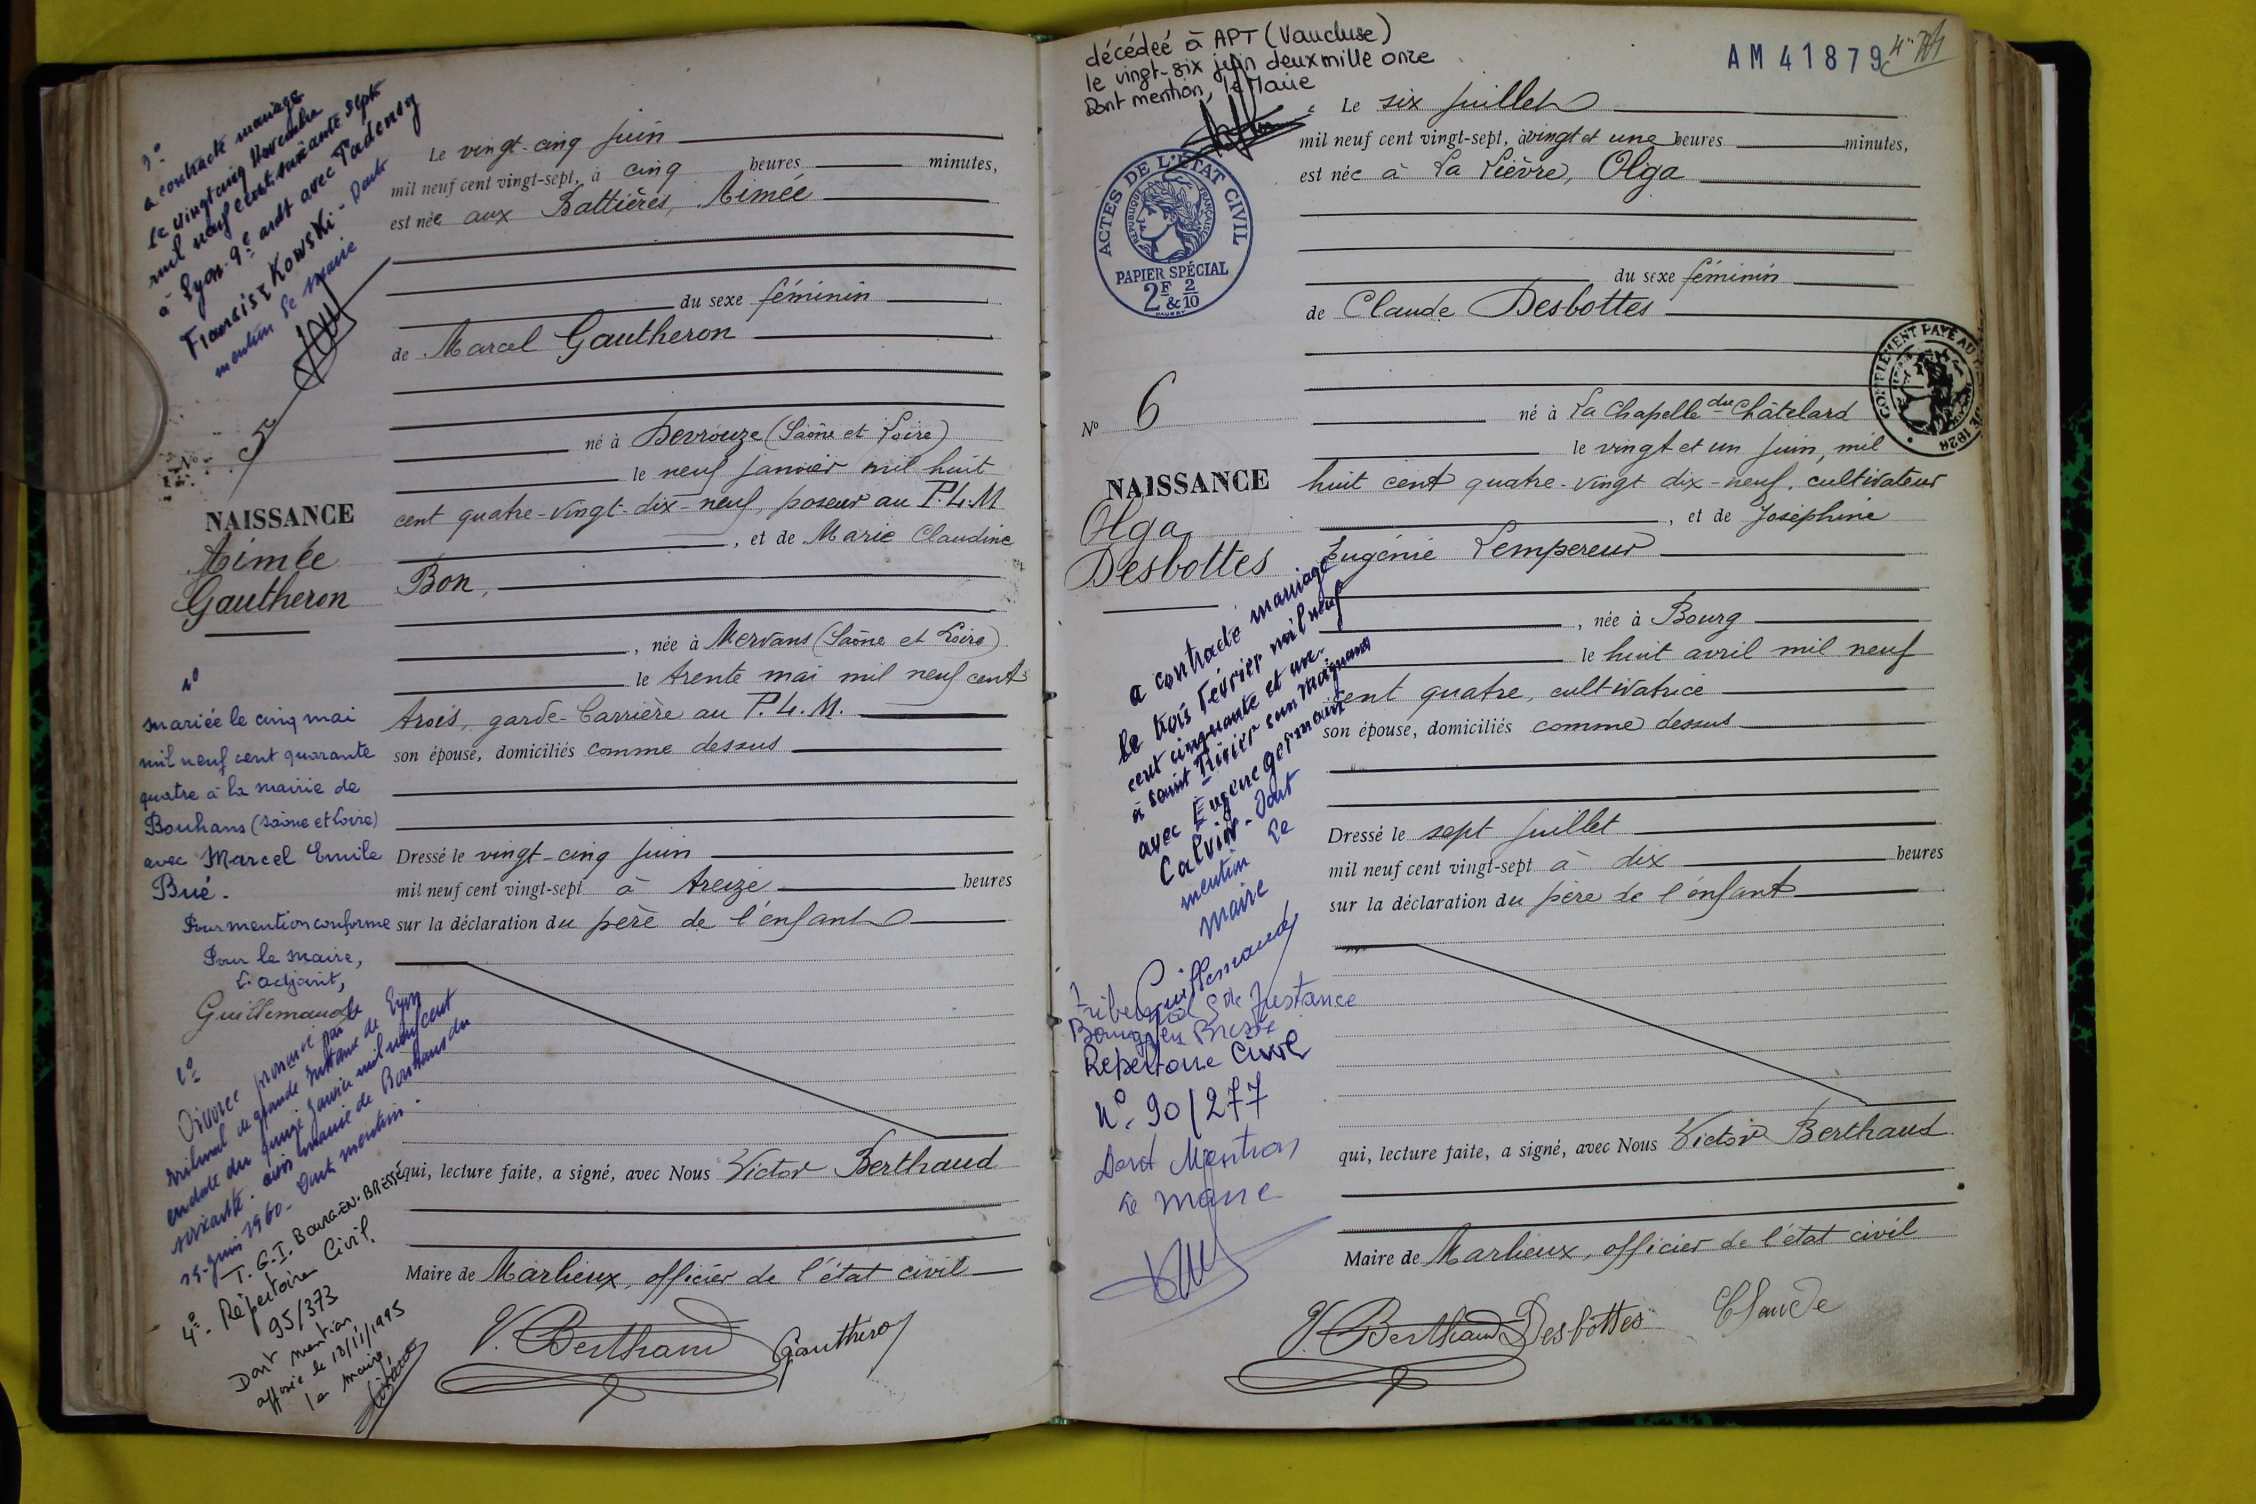 3°
a contracté mariage
le vingt cinq Novembre
mil neuf cent soixante sept
à Lyon 9e ardt avec Tadensg
Franciszkowski - Dont
mention Le Maire
Le vingt-cinq juin
mil neuf cent vingt-sept, à cinq heures minutes,
est née aux Battières, Aimée
du sexe féminin
de Marcel Gautheron
né à Devrouze (Saône et Loire)
le neuf janvier mil huit
cent quatre-vingt-dix-neuf, poseur au P.L.M
, et de Marie Claudine
Bon,
, née à Mervans (Saône et Loire)
le trente mai mil neuf cent
trois, garde-barrière au P.L.M.
son épouse, domiciliés comme dessus
Dressé le vingt-cinq juin
mil neuf cent vingt-sept à treize heures
sur la déclaration du père de l'enfant
qui, lecture faite, a signé, avec Nous Victor Berthaud
Maire de Marlieux, officier de l'état civil
V. Berthaud Gautheron
No 5
NAISSANCE
Aimée
Gautheron
1°
mariée le cinq mai
mil neuf cent quarante
quatre à la mairie de
Bouhans (Saône et Loire)
avec Marcel Emile
Bué.
Pour mention conforme
Pour le maire,
L'adjoint,
Guillemaud
2°
Divorce prononcé par le
Tribunal de grande Instance de Lyon
en date du quinze Janvier mil neuf cent
soixante. avis mairie de Bouhans du
15 juin 1960. Dont mention.
T.G.I. BOURG-EN-BRESSE
4° - Répertoire Civil.
95/373
Dont mention
apposée le 13/11/1995
le maire
décédée à APT (Vaucluse)
le vingt-six juin deux mille onze
Dont mention, le Maire
AM 41879
ACTES DE L'ÉTAT CIVIL
RÉPUBLIQUE FRANÇAISE
PAPIER SPÉCIAL
2F & 2/10
Le six juillet
mil neuf cent vingt-sept, à vingt et une heures minutes,
est née à La Lièvre, Olga
du sexe féminin
de Claude Desbottes
né à La Chapelle du Châtelard
le vingt et un juin, mil
huit cent quatre-vingt dix-neuf, cultivateur
, et de Joséphine
Eugénie Lempereur
, née à Bourg
le huit avril mil neuf
cent quatre, cultivatrice
son épouse, domiciliés comme dessus
Dressé le sept juillet
mil neuf cent vingt-sept à dix heures
sur la déclaration du père de l'enfant
qui, lecture faite, a signé, avec Nous Victor Berthaud
Maire de Marlieux, officier de l'état civil
V. Berthaud Desbottes Claude
No 6
NAISSANCE
Olga
Desbottes
a contracté mariage
le trois Février mil neuf
cent cinquante et un
à Saint Trivier sur Moignans
avec Eugène Germain
Calvin - Dont
mention Le
Maire
Guillemaud
Tribunal Gde Instance
Bourg en Bresse
Répertoire Civil
N° 90/277
Dont Mention
Le Maire